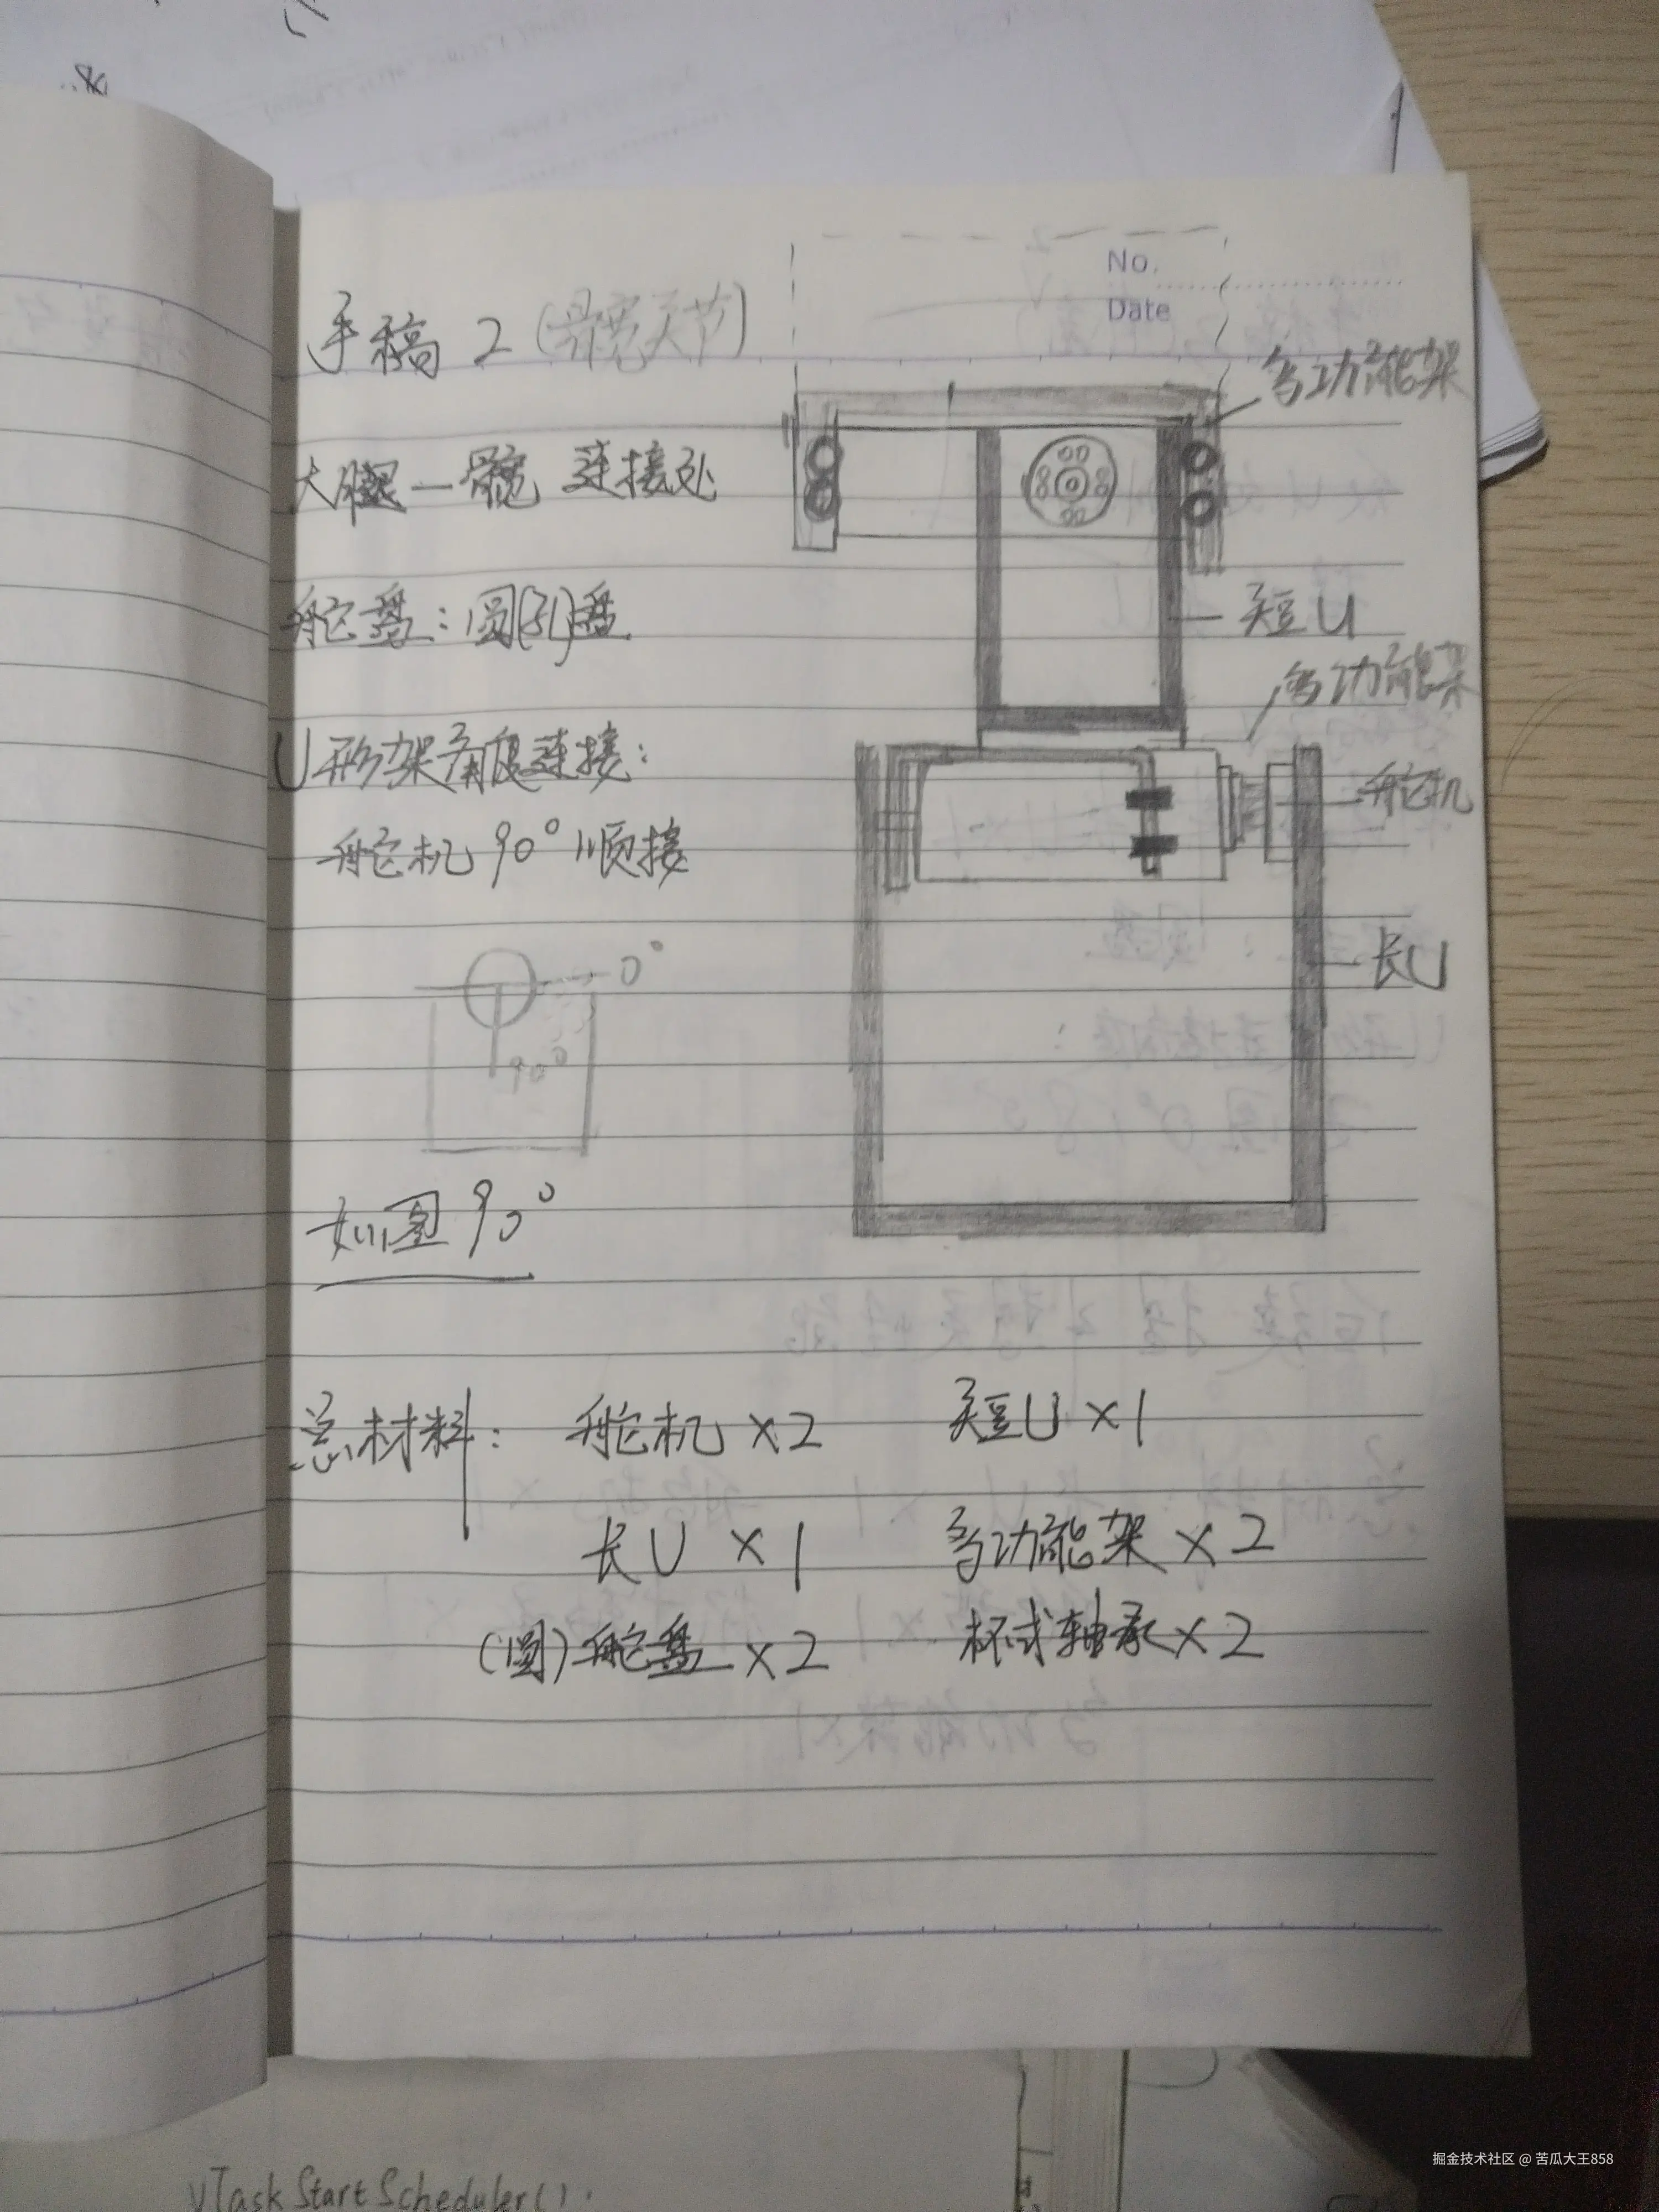 No.
Date
手稿 2 (髋关节)
多功能架
大腿—髋 连接处
舵盘：圆(孔)盘
短U
多功能架
U形架角度连接：
舵机
舵机 90° 顺接
长U
0°
90°
如图 90°
总材料： 舵机 ×2 短U ×1
长U ×1 多功能架 ×2
(圆)舵盘 ×2 杯式轴承 ×2
vTaskStartScheduler();
掘金技术社区 @ 苦瓜大王858